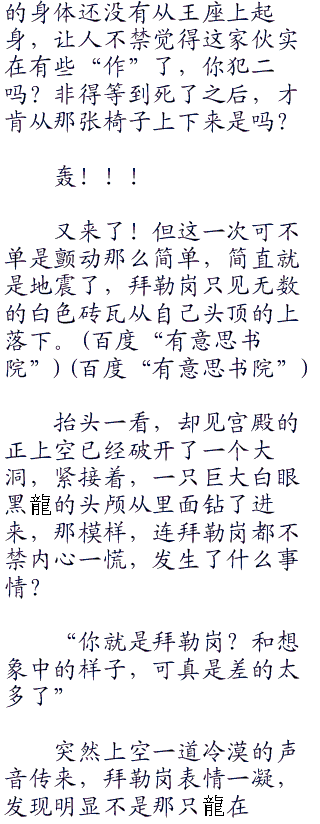 的身体还没有从王座上起
身，让人不禁觉得这家伙实
在有些“作”了，你犯二
吗？非得等到死了之后，才
肯从那张椅子上下来是吗？
轰！！！
又来了！但这一次可不
单是颤动那么简单，简直就
是地震了，拜勒岗只见无数
的白色砖瓦从自己头顶的上
落下。(百度“有意思书
院”)(百度“有意思书院”)
抬头一看，却见宫殿的
正上空已经破开了一个大
洞，紧接着，一只巨大白眼
黑龍的头颅从里面钻了进
来，那模样，连拜勒岗都不
禁内心一慌，发生了什么事
情？
“你就是拜勒岗？和想
象中的样子，可真是差的太
多了”
突然上空一道冷漠的声
音传来，拜勒岗表情一凝，
发现明显不是那只龍在